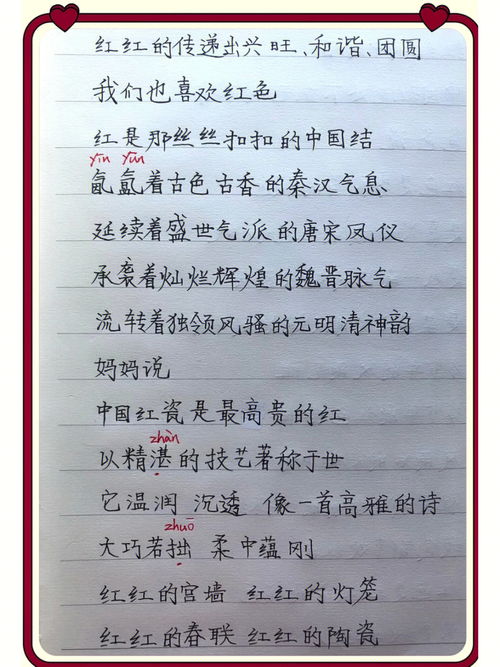 红红的传递出兴旺、和谐、团圆
我们也喜欢红色
红是那丝丝扣扣的中国结
yīn yūn
氤氲着古色古香的秦汉气息
延续着盛世气派的唐宋风仪
承袭着灿烂辉煌的魏晋脉气
流转着独领风骚的元明清神韵
妈妈说
中国红瓷是最高贵的红
zhàn
以精湛的技艺著称于世
它温润 沉透 像一首高雅的诗
zhuō
大巧若拙 柔中蕴刚
红红的宫墙 红红的灯笼
红红的春联 红红的陶瓷